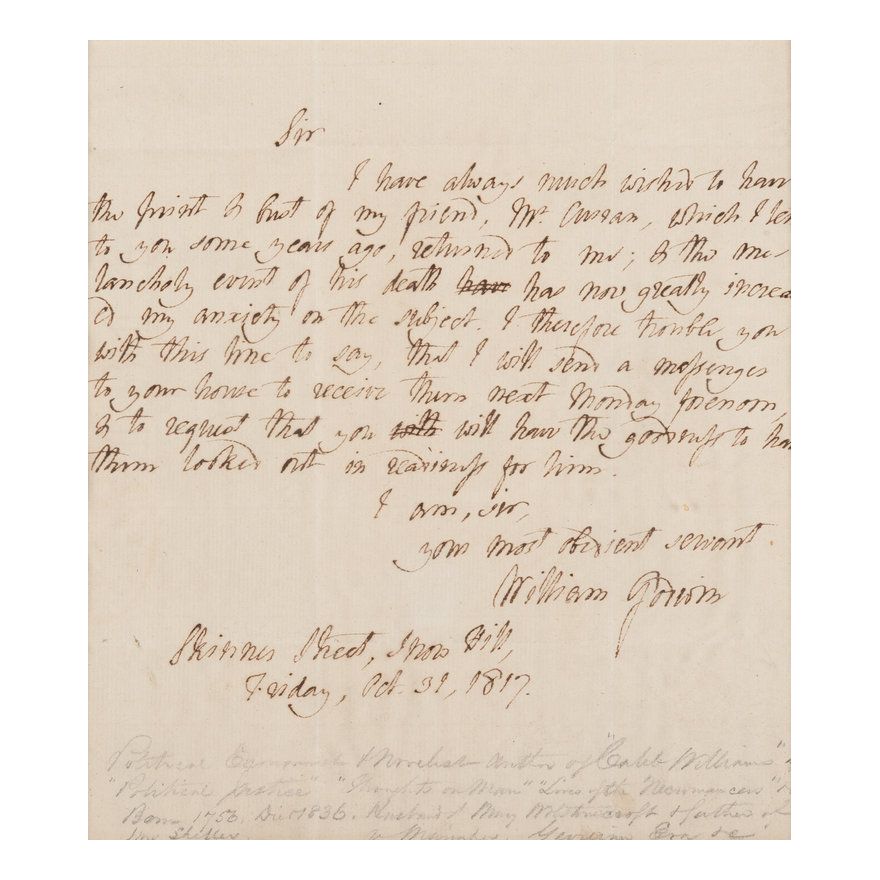 Sir
I have always much wished to have
the print & bust of my friend, Mr. Curran, which I le
to you some years ago, returned to me; & the me-
lancholy event of his death have has now greatly increa
ed my anxiety on the subject. I therefore trouble you
with this line to say, that I will send a messenger
to your house to receive them next Monday forenoon,
& to request that you with will have the goodness to ha
them looked out in readiness for him.
I am, sir,
your most obedient servant
William Godwin
Skinner Street, Snow Hill,
Friday, Oct. 31, 1817.
Political Economist & Novelist Author of "Caleb Williams"
"Political Justice" "Thoughts on Man" "Lives of the Necromancers"
Born 1756. Died 1836. Husband of Mary Wollstonecraft & father of
Mrs Shelley